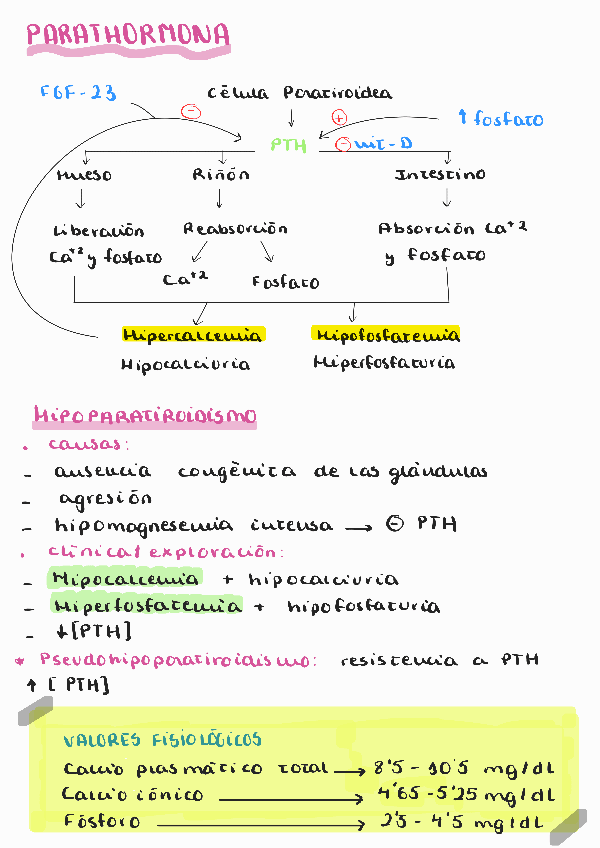 PARATHORMONA
FGF-23 Célula Paratiroidea
⊖ ⊕ ↑ fosfato
PTH ⊖ vit-D
Hueso Riñón Intestino
Liberación Reabsorción Absorción Ca+2
Ca+2 y fosfato y fosfato
Ca+2 Fosfato
Hipercalcemia Hipofosfatemia
Hipocalciuria Hiperfosfaturia
HIPOPARATIROIDISMO
. causas:
- ausencia congénita de las glándulas
- agresión
- hipomagnesemia intensa → ⊖ PTH
. clínica/exploración:
- Hipocalcemia + hipocalciuria
- Hiperfosfatemia + hipofosfaturia
- ↓[PTH]
* Pseudohipoparatiroidismo: resistencia a PTH
↑ [PTH]
VALORES FISIOLÓGICOS
Calcio plasmático total → 8'5 - 10'5 mg/dL
Calcio iónico → 4'65 - 5'25 mg/dL
Fósforo → 2'5 - 4'5 mg/dL